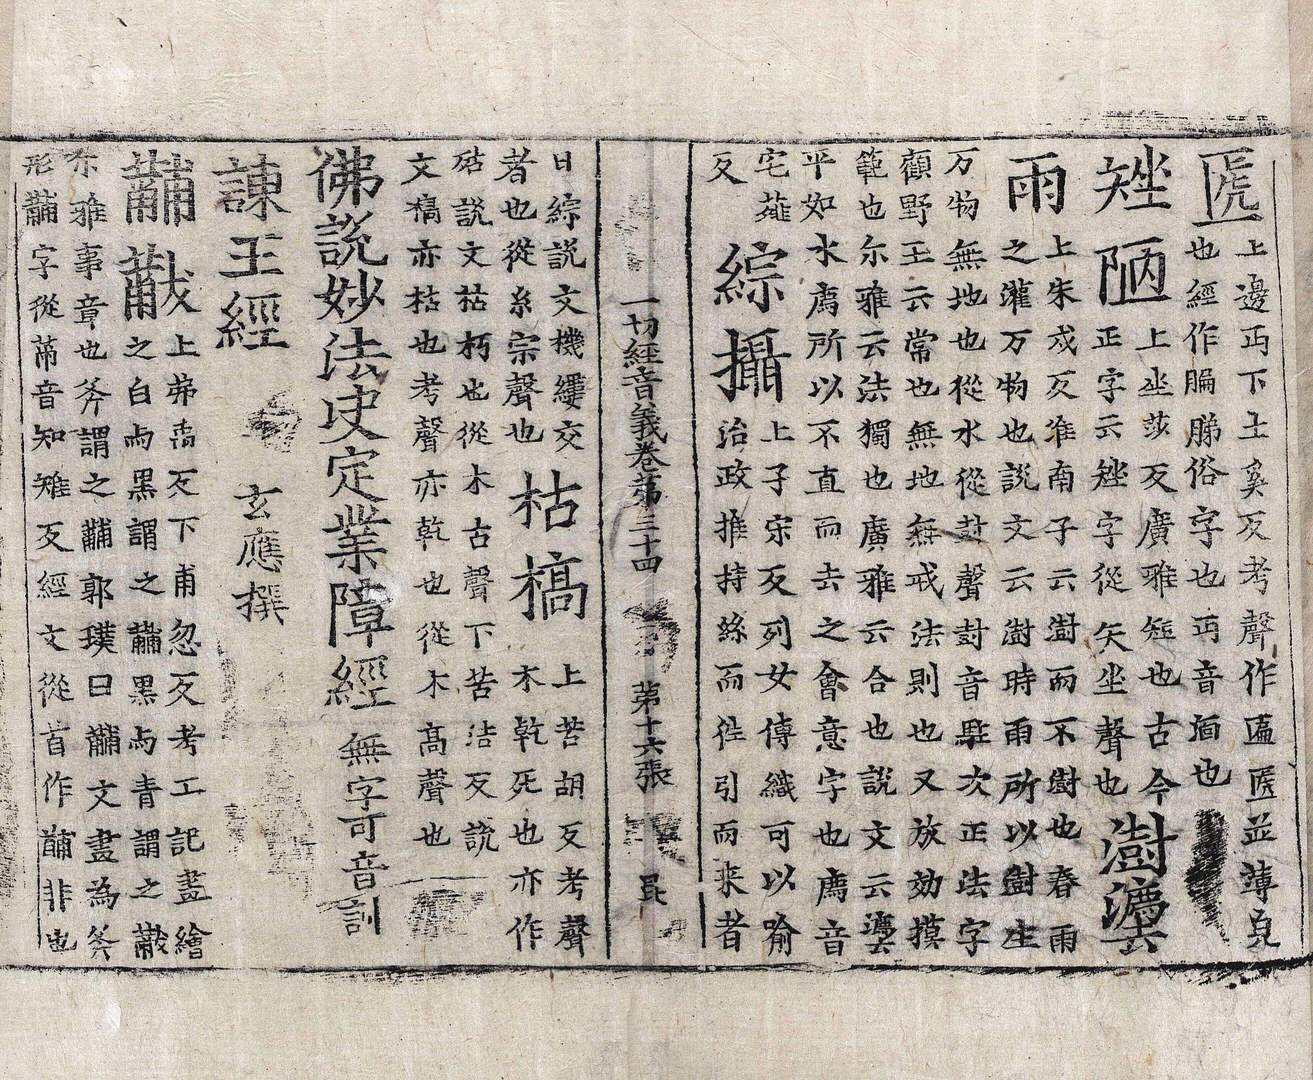 㔸上邊丏下土奚反考聲作匾匾並薄皃
也經作䏈䏲俗字也丏音湎也
矬陋上坐莎反廣雅短也古今
正字云矬字從矢坐聲也澍灋
雨上朱戍反淮南子云澍而不澍也春雨
之灌万物也說文云澍時雨所以澍生
万物無地也從水從尌聲尌音駐次正法字
顧野王云常也無地無戒法則也又放効摸
範也尒雅云法獨也廣雅云合也說文云灋
平如水廌所以不直而去之會意字也廌音
宅薤
反綜攝上子宋反列女傳織可以喻
治政推持絲而徃引而来者
一切經音義卷第三十四 第十六張
曰綜說文機縷交
者也從糸宗聲也枯槁上苦胡反考聲
木乾死也亦作
𣨙說文枯朽也從木古聲下苦浩反說
文槁亦枯也考聲亦乾也從木高聲也
佛說妙法决定業障經 無字可音訓
諫王經 玄應撰
黼黻上弗禹反下甫忽反考工記畫繪
之白与黑謂之黼黑与青謂之黻
尒雅事章也斧謂之黼郭璞曰黼文畫為斧
形黼字從黹音知雉反經文從首作䩉非也